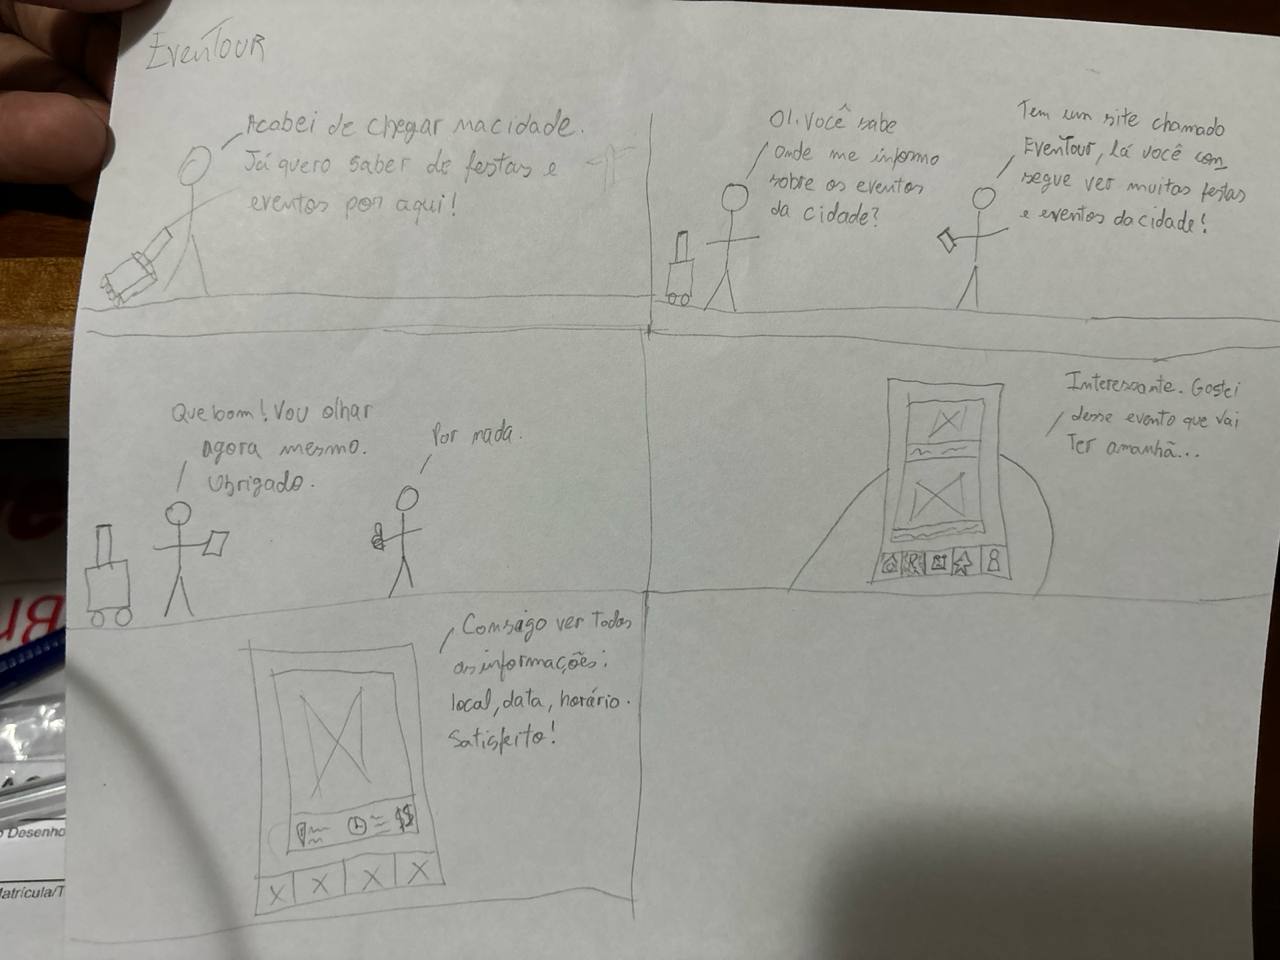 EvenTour
Acabei de chegar na cidade.
Já quero saber de festas e
eventos por aqui!
Oi. Você sabe
onde me informo
sobre os eventos
da cidade?
Tem um site chamado
EvenTour, lá você con
segue ver muitas festas
e eventos da cidade!
Que bom! Vou olhar
agora mesmo.
Obrigado.
Por nada.
Interessante. Gostei
desse evento que vai
Ter amanhã...
Consigo ver Todas
as informações:
local, data, horário.
Satisfeito!
$$
o Desenho
Matrícula/T